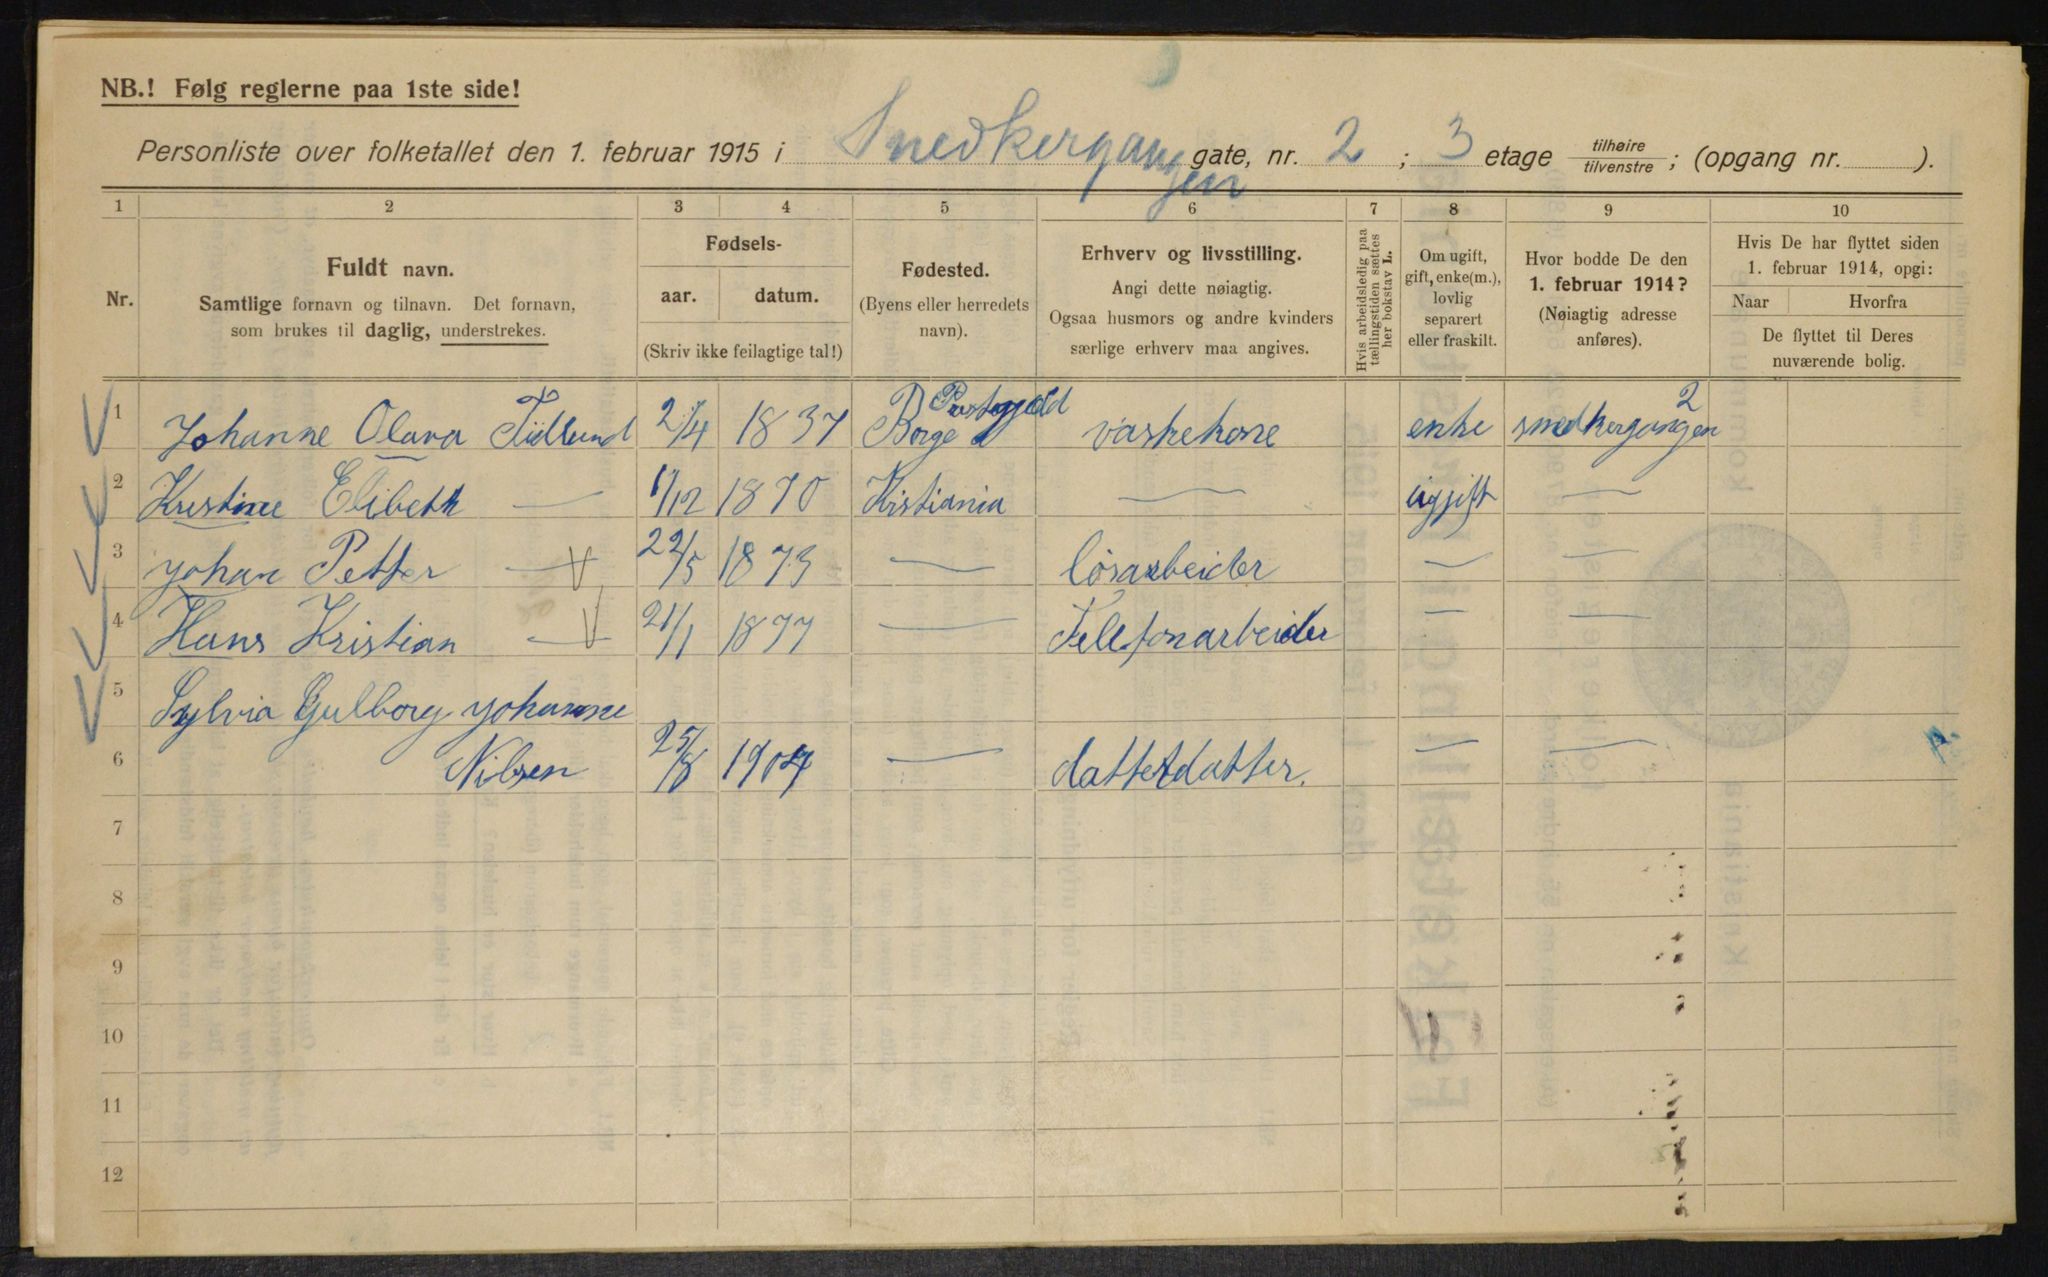 NB.! Følg reglerne paa 1ste side!
Personliste over folketallet den 1. februar 1915 i Snedkergangen gate, nr. 2 ; 3 etage tilhøire / tilvenstre ; (opgang nr. ).
1 2 3 4 5 6 7 8 9 10
Nr.
Fuldt navn.
Samtlige fornavn og tilnavn. Det fornavn,
som brukes til daglig, understrekes.
Fødsels-
aar. datum.
(Skriv ikke feilagtige tal!)
Fødested.
(Byens eller herredets
navn).
Erhverv og livsstilling.
Angi dette nøiagtig.
Ogsaa husmors og andre kvinders
særlige erhverv maa angives.
Hvis arbeidsledig paa
tællingstiden sættes
her bokstav L.
Om ugift,
gift, enke(m.),
lovlig
separert
eller fraskilt.
Hvor bodde De den
1. februar 1914?
(Nøiagtig adresse
anføres).
Hvis De har flyttet siden
1. februar 1914, opgi:
Naar Hvorfra
De flyttet til Deres
nuværende bolig.
1 Johanne Olava Tidlund 2/4 1837 Borge Prestegjeld vaskekone enke snedkergangen 2
2 Kristine Elibeth — 1/12 1870 Kristiania — ugift —
3 Johan Petter — 22/5 1873 — løsarbeider — —
4 Hans Kristian — 21/1 1877 — Telefonarbeider — —
5 Sylvia Gulborg Johanne
6 Nilsen 25/8 1904 — datterdatter. — —
7
8
9
10
11
12